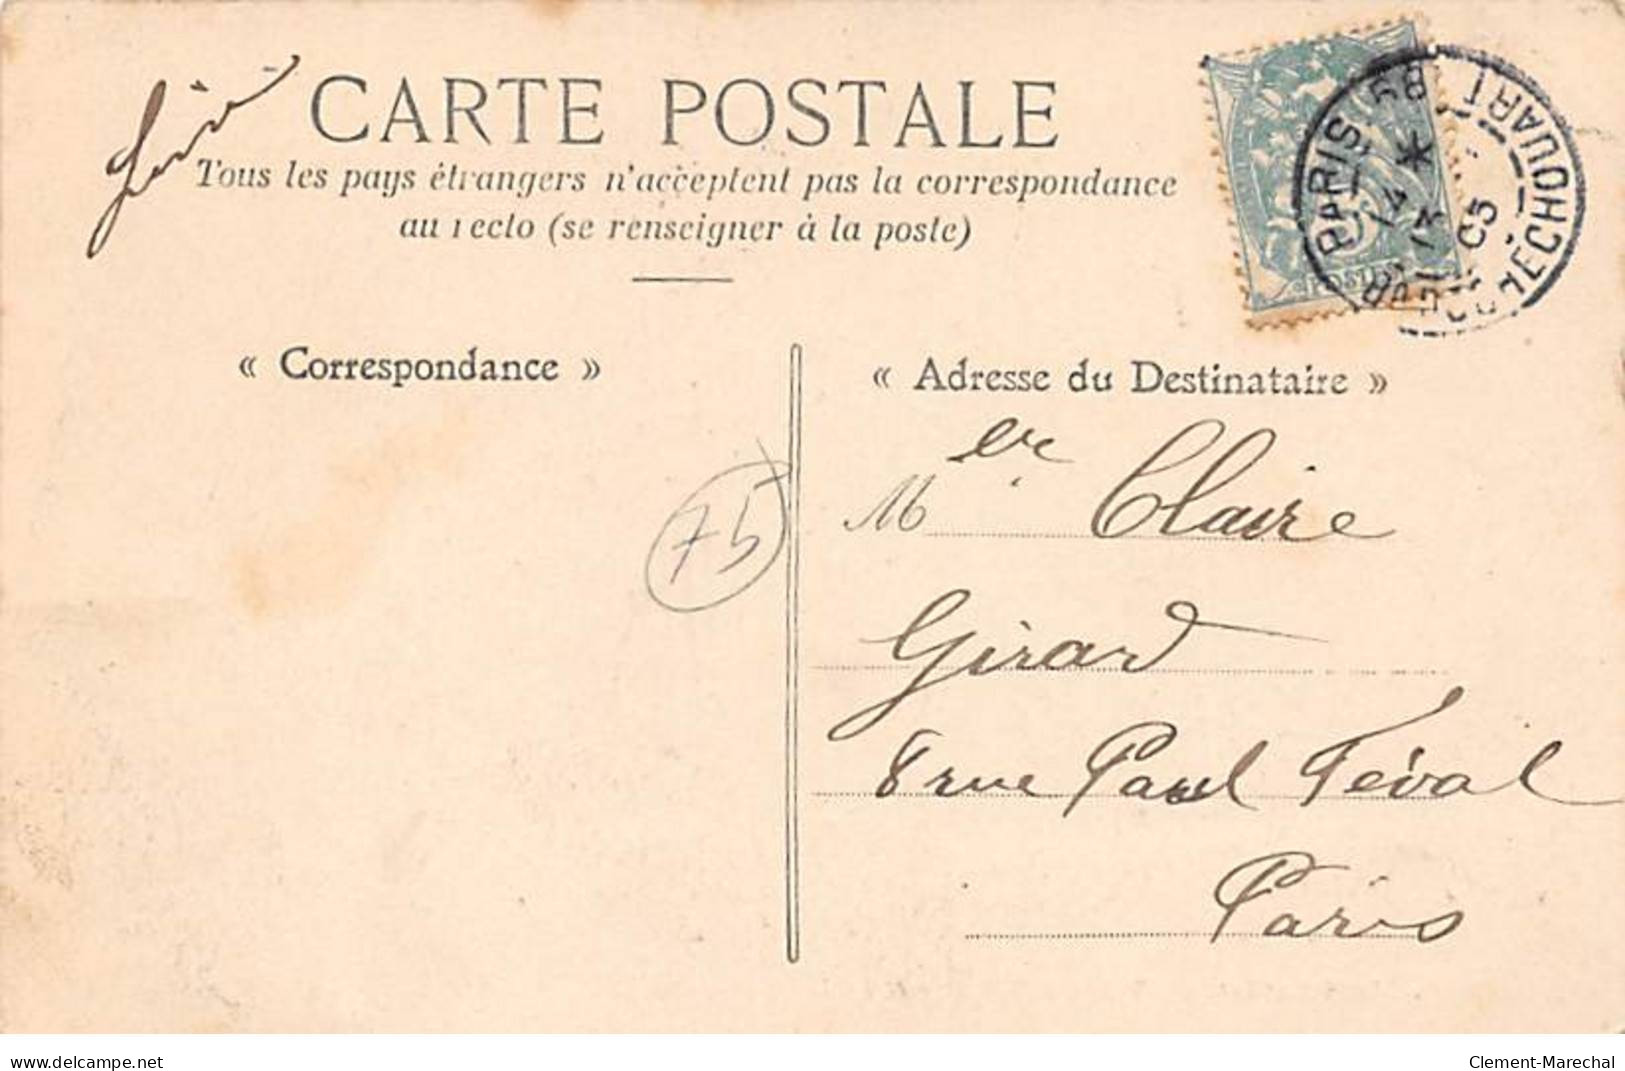 CARTE POSTALE
Tous les pays étrangers n'acceptent pas la correspondance
au recto (se renseigner à la poste)
« Correspondance »
« Adresse du Destinataire »
75
M er Claire
Girard
8 rue Paul Féval
Paris
PARIS 58
ROCHECHOUART
POSTES
www.delcampe.net
Clement-Marechal